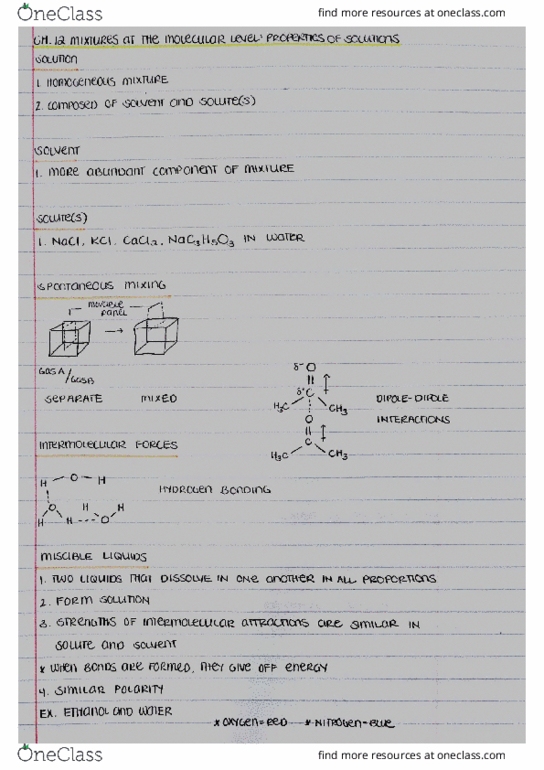 OneClass
find more resources at oneclass.com
CH. 12 MIXTURES AT THE MOLECULAR LEVEL: PROPERTIES OF SOLUTIONS
SOLUTION
1. HOMOGENEOUS MIXTURE
2. COMPOSED OF SOLVENT AND SOLUTE(S)
SOLVENT
1. MORE ABUNDANT COMPONENT OF MIXTURE
SOLUTE(S)
1. NaCl, KCl, CaCl₂, NaC₃H₅O₃ IN WATER
SPONTANEOUS MIXING
moveable
panel
GAS A
/GAS B
SEPARATE MIXED
δ⁻ O
δ⁺ C
H₃C CH₃
O
C
H₃C CH₃
DIPOLE-DIPOLE
INTERACTIONS
INTERMOLECULAR FORCES
H O H
O H H
H H O
HYDROGEN BONDING
MISCIBLE LIQUIDS
1. TWO LIQUIDS THAT DISSOLVE IN ONE ANOTHER IN ALL PROPORTIONS
2. FORM SOLUTION
3. STRENGTHS OF INTERMOLECULAR ATTRACTIONS ARE SIMILAR IN
SOLUTE AND SOLVENT
* WHEN BONDS ARE FORMED, THEY GIVE OFF ENERGY
4. SIMILAR POLARITY
EX. ETHANOL AND WATER
* OXYGEN=RED * NITROGEN=BLUE
OneClass
find more resources at oneclass.com